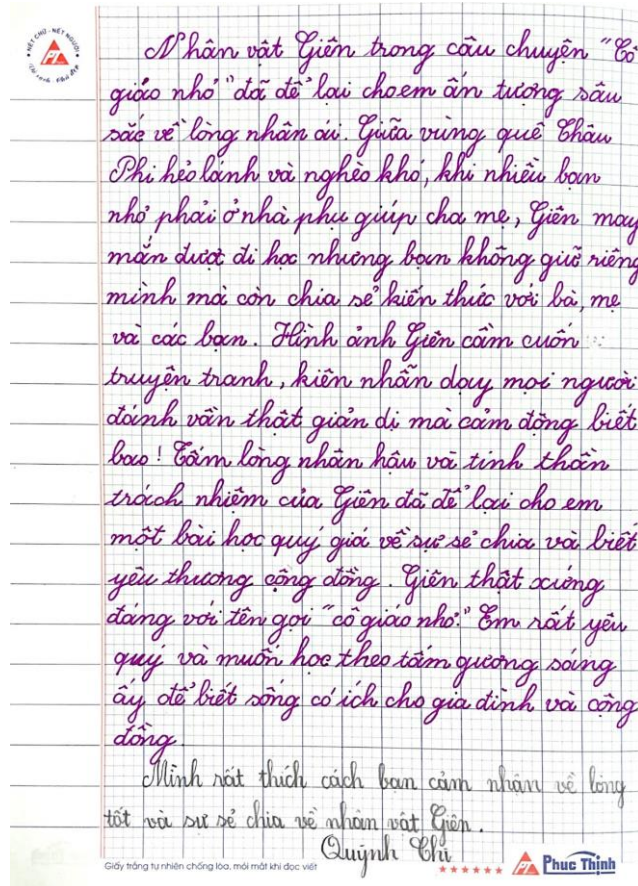 NÉT CHỮ - NẾT NGƯỜI
Nhân vật Giên trong câu chuyện "Cô
giáo nhỏ" đã để lại cho em ấn tượng sâu
sắc về lòng nhân ái. Giữa vùng quê Châu
Phi hẻo lánh và nghèo khó, khi nhiều bạn
nhỏ phải ở nhà phụ giúp cha mẹ, Giên may
mắn được đi học nhưng bạn không giữ riêng
mình mà còn chia sẻ kiến thức với bà, mẹ
và các bạn. Hình ảnh Giên cầm cuốn
truyện tranh, kiên nhẫn dạy mọi người
đánh vần thật giản dị mà cảm động biết
bao! Tấm lòng nhân hậu và tinh thần
trách nhiệm của Giên đã để lại cho em
một bài học quý giá về sự sẻ chia và biết
yêu thương cộng đồng. Giên thật xứng
đáng với tên gọi "cô giáo nhỏ." Em rất yêu
quý và muốn học theo tấm gương sáng
ấy để biết sống có ích cho gia đình và cộng
đồng.
Mình rất thích cách bạn cảm nhận về lòng
tốt và sự sẻ chia về nhân vật Giên.
Quỳnh Chi
Giấy trắng tự nhiên chống lóa, mỏi mắt khi đọc viết
Phuc Thinh